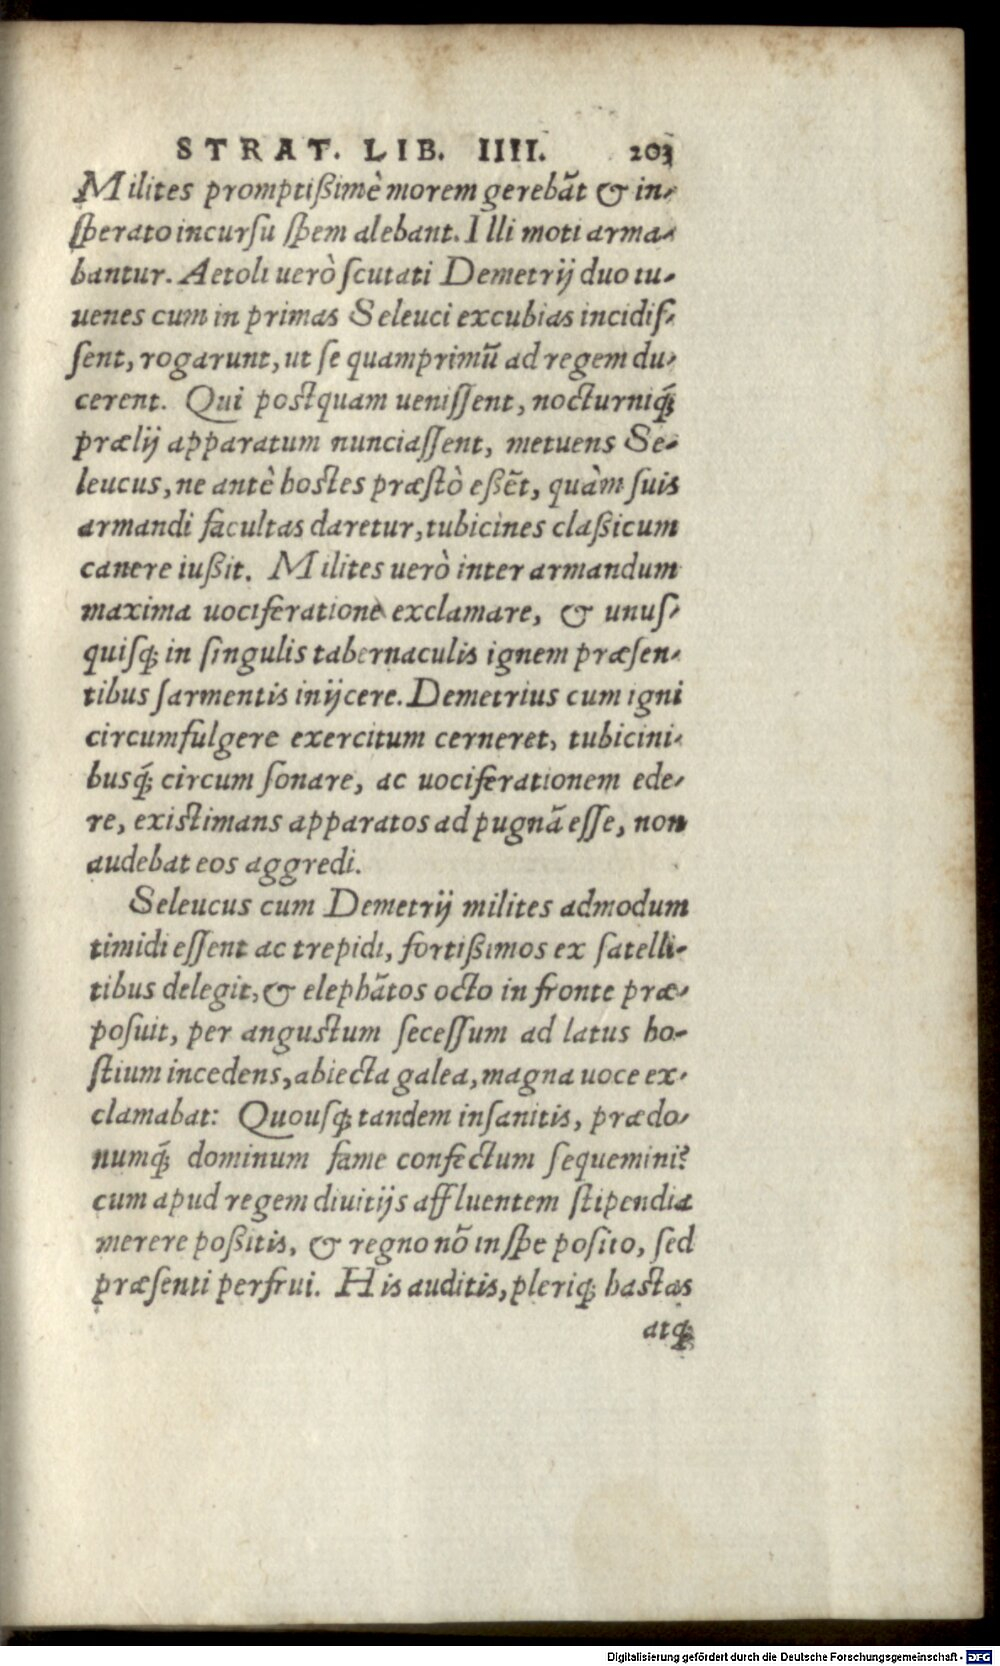 STRAT. LIB. IIII. 203
Milites promptißimè morem gerebãt & in-
ſperato incurſu ſpem alebant. Illi moti arma-
bantur. Aetoli uerò ſcutati Demetrij duo iu-
uenes cum in primas Seleuci excubias incidiſ-
ſent, rogarunt, ut ſe quamprimũ ad regem du-
cerent. Qui postquam ueniſſent, nocturniq́;
prælij apparatum nunciaſſent, metuens Se-
leucus, ne antè hostes præſtò eßẽt, quàm ſuis
armandi facultas daretur, tubicines claßicum
canere iußit. Milites uerò inter armandum
maxima uociferatione exclamare, & unuſ-
quiſq; in ſingulis tabernaculis ignem præſen-
tibus ſarmentis inijcere. Demetrius cum igni
circumfulgere exercitum cerneret, tubicini-
busq́; circum ſonare, ac uociferationem ede-
re, existimans apparatos ad pugnã eſſe, non
audebat eos aggredi.
Seleucus cum Demetrij milites admodum
timidi eſſent ac trepidi, fortißimos ex ſatelli-
tibus delegit, & elephãtos octo in fronte præ-
poſuit, per angustum ſeceſſum ad latus ho-
ſtium incedens, abiecta galea, magna uoce ex-
clamabat: Quouſq; tandem inſanitis, prædo-
numq́; dominum fame confectum ſequemini?
cum apud regem diuitijs affluentem ſtipendia
merere poßitis, & regno nõ in ſpe poſito, ſed
præſenti perfrui. His auditis, pleriq; hastas
atq;
Digitalisierung gefördert durch die Deutsche Forschungsgemeinschaft - DFG